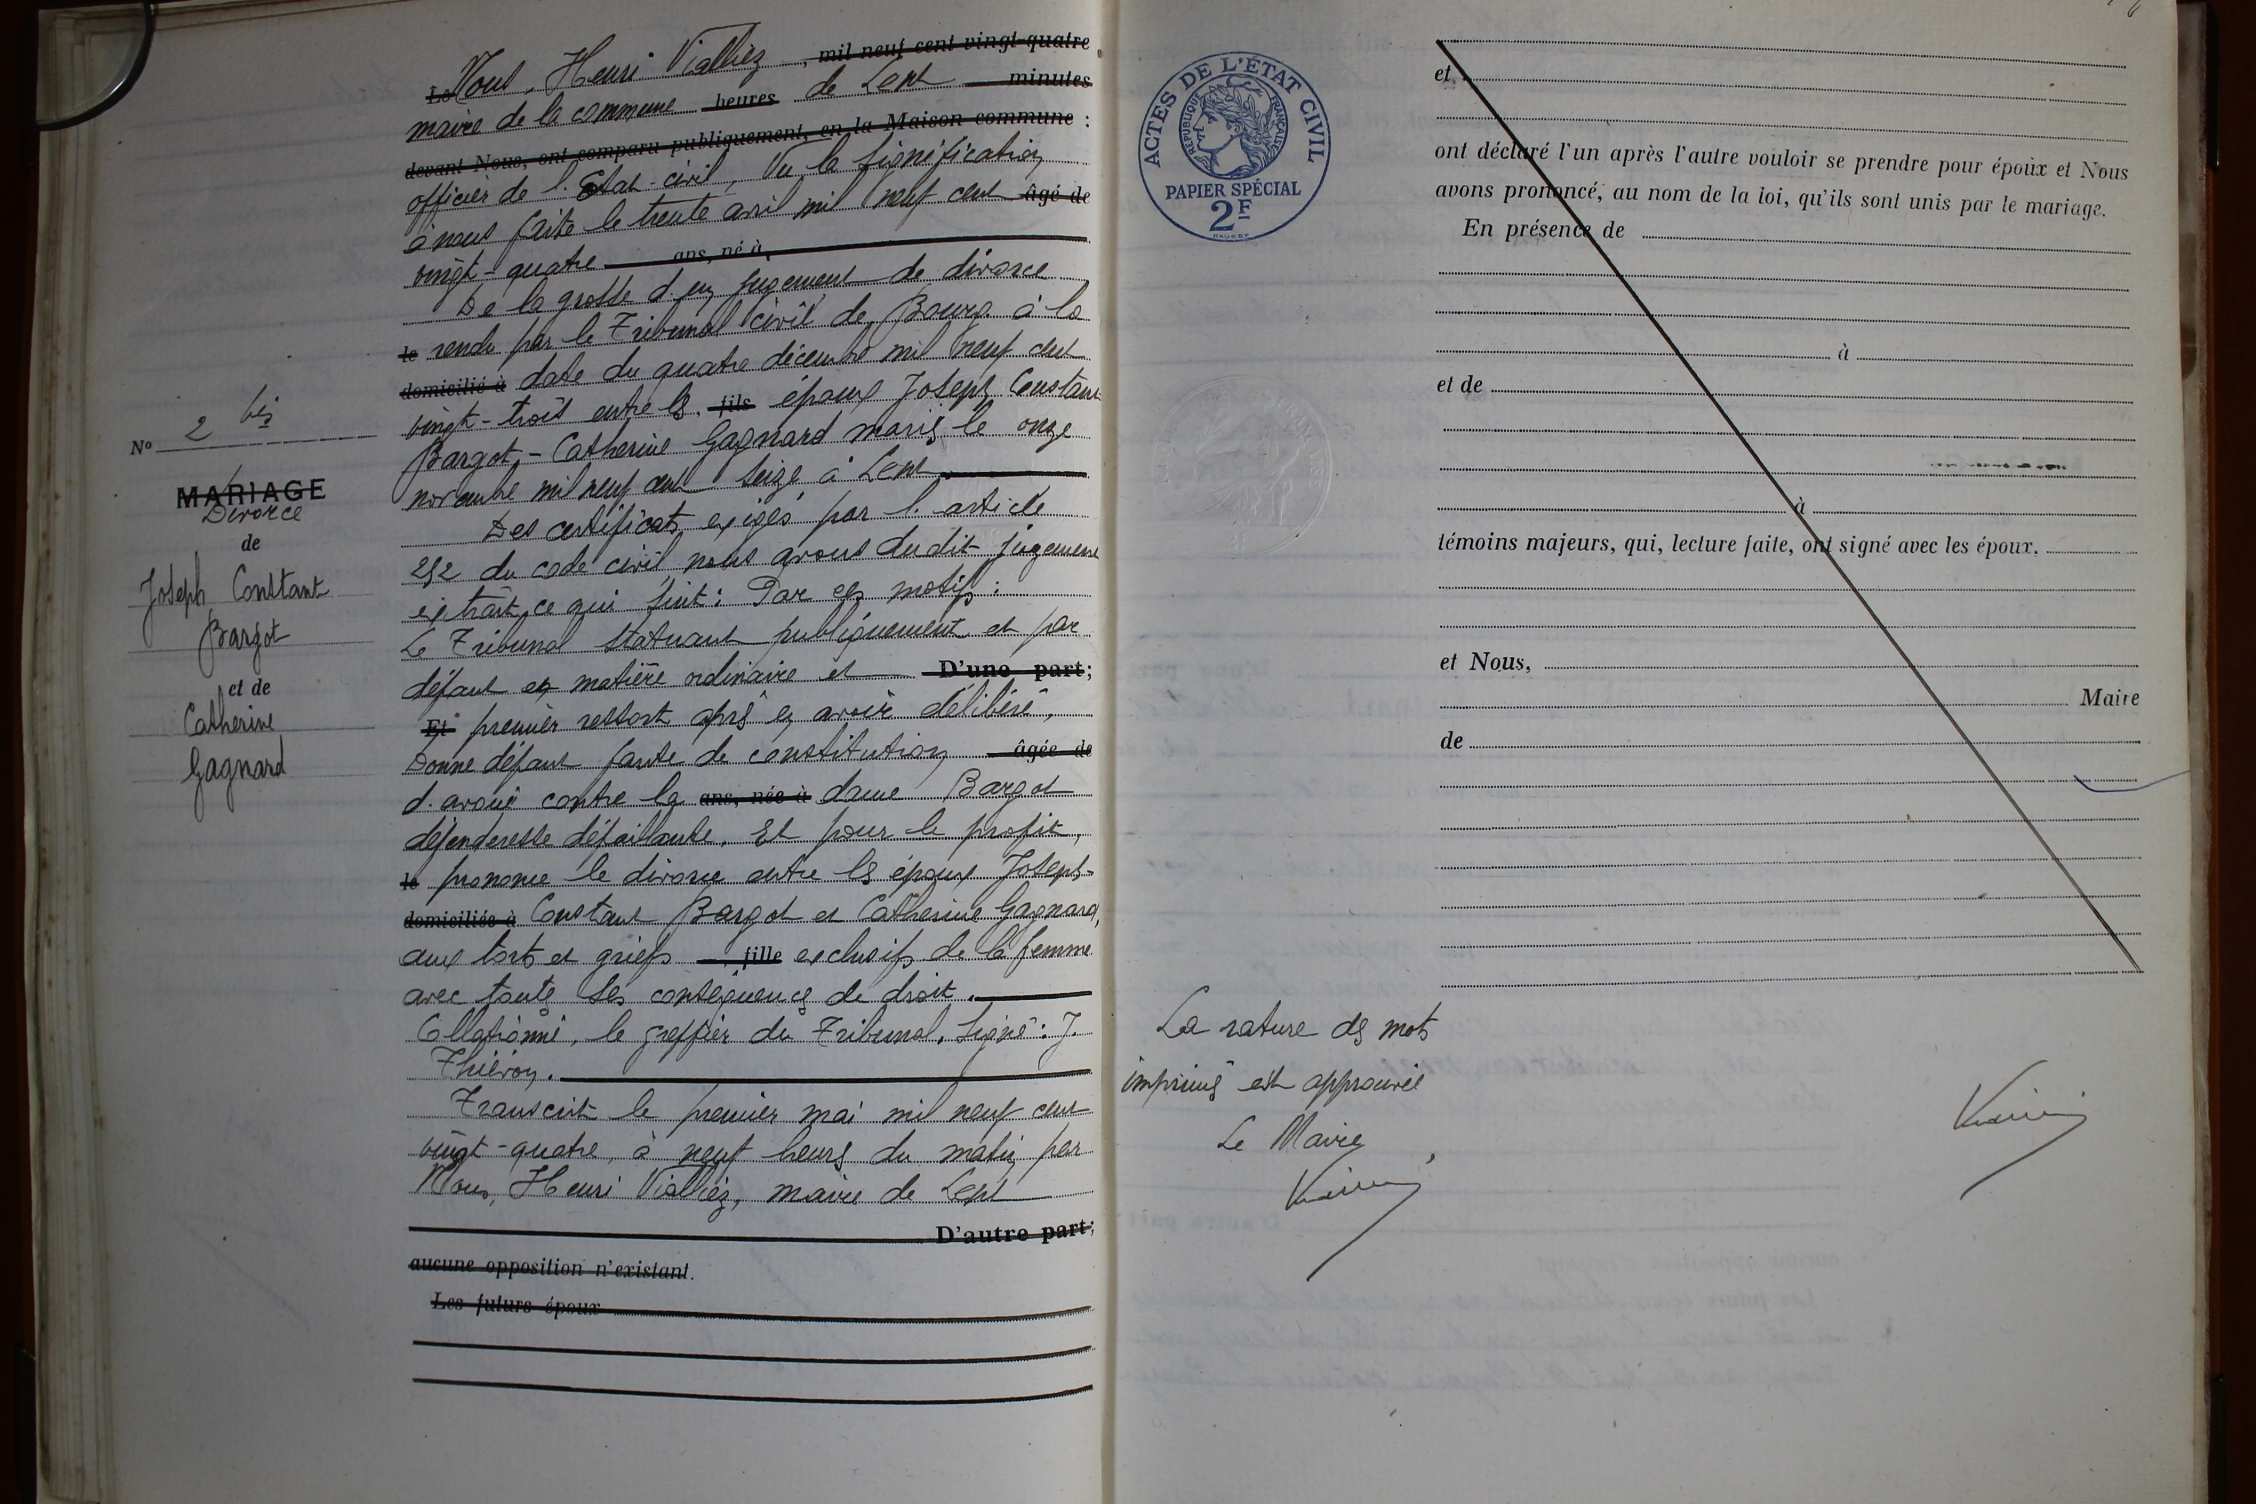 Nº 2 bis
MARIAGE
Divorce
de
Joseph Constant
Bargot
et de
Catherine
Gagnard
Le Nous, Henri Vialliez, mil neuf cent vingt-quatre
maire de la commune heures de Lent minutes
devant Nous, ont comparu publiquement, en la Maison commune :
officier de l'Etat-civil, Vu la signification
à nous faite le trente avril mil neuf cent âgé de
vingt-quatre ans, né à
De la grosse d'un jugement de divorce
le rendu par le Tribunal civil de Bourg à la
domicilié à date du quatre décembre mil neuf cent
vingt-trois entre les fils époux Joseph Constant
Bargot - Catherine Gagnard mariés le onze
novembre mil neuf cent seize à Lent
Des certificats exigés par l'article
252 du code civil nous avons dudit jugement
extrait ce qui suit : Par ces motifs :
Le Tribunal statuant publiquement et par
défaut en matière ordinaire et D'une part;
Et premier ressort après en avoir délibéré,
Donne défaut faute de constitution âgée de
d'avoué contre la ans, née à dame Bargot
défenderesse défaillante. Et pour le profit,
le prononce le divorce entre les époux Joseph-
domiciliée à Constant Bargot et Catherine Gagnard,
aux torts et griefs fille exclusifs de la femme
avec toutes ses conséquences de droit.
Collationné, le greffier du Tribunal. Signé : J.
Thiéron.
Transcrit le premier mai mil neuf cent
vingt-quatre, à neuf heures du matin par
Nous, Henri Vialliez, maire de Lent
D'autre part;
aucune opposition n'existant.
Les futurs époux
ACTES DE L'ÉTAT CIVIL
RÉPUBLIQUE FRANÇAISE
PAPIER SPÉCIAL
2F
et
ont déclaré l'un après l'autre vouloir se prendre pour époux et Nous
avons prononcé, au nom de la loi, qu'ils sont unis par le mariage.
En présence de
à
et de
à
témoins majeurs, qui, lecture faite, ont signé avec les époux.
et Nous,
Maire
de
La rature des mots
imprimés est approuvée
Le Maire,